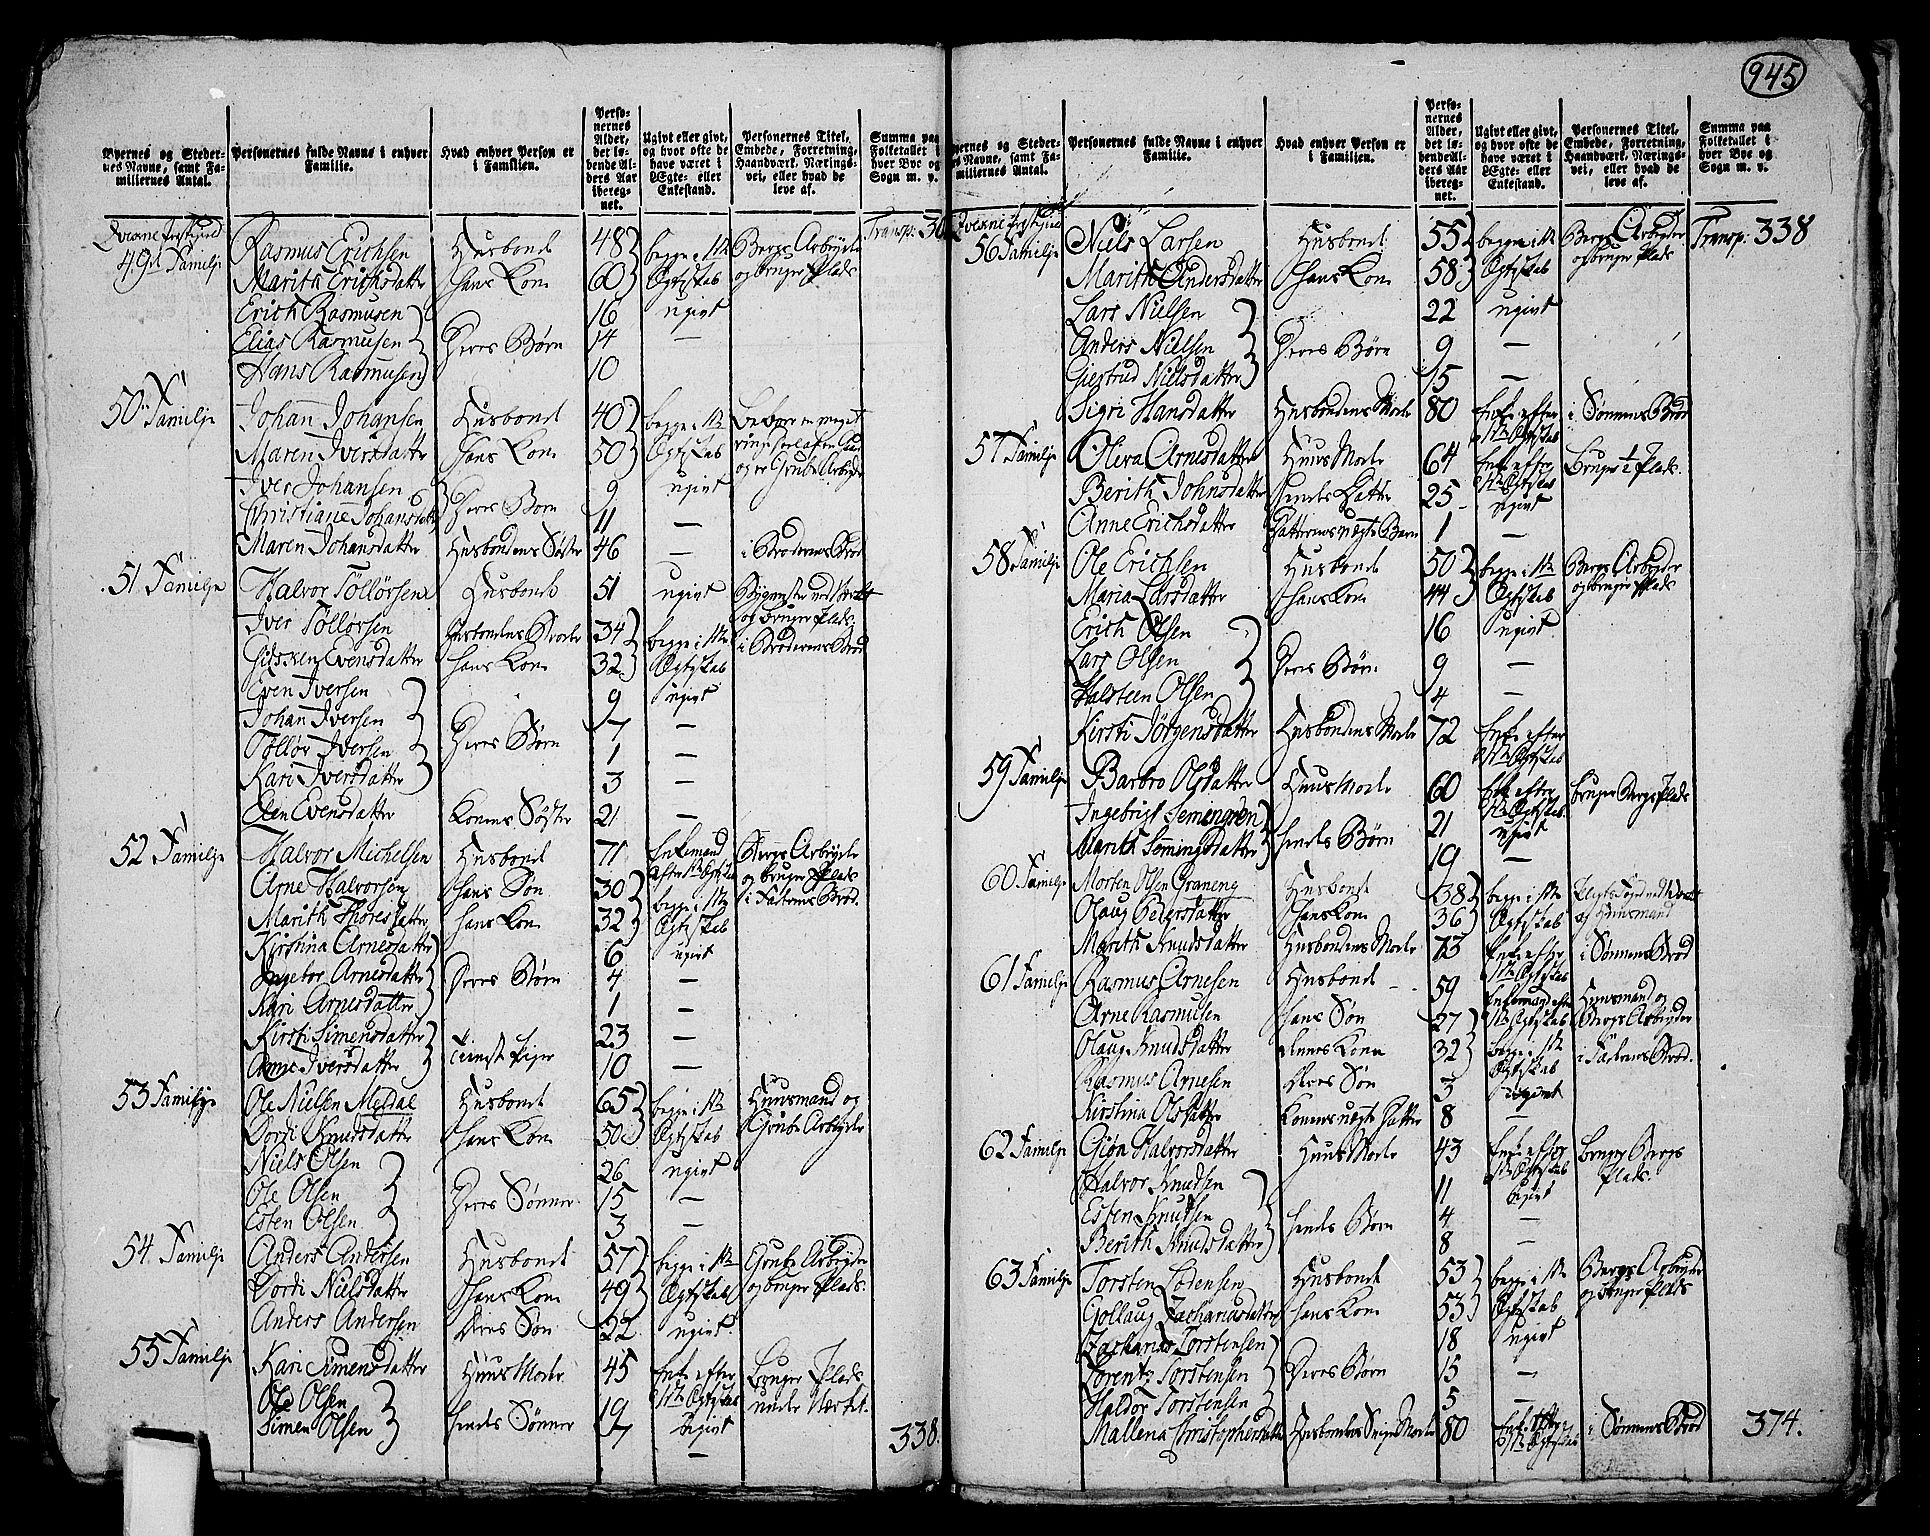 945
Byernes og Steder-
nes Navne, samt Fa-
miliernes Antal.
Personernes fulde Navne i enhver
Familie.
Hvad enhver Person er
i Familien.
Perso-
nernes
Alder,
det lø-
bende Al-
ders Aar
ibereg-
net.
Ugivt eller givt,
og hvor ofte de
have været i
Ægte- eller
Enkestand.
Personernes Titel,
Embede, Forretning,
Haandværk, Nærings-
vei, eller hvad de
leve af.
Summa paa
Folketallet i
hver Bye og
Sogn m. v.
49 Familje Rasmus Erichsen Husbond 48 begge i 1te Bergs Arbeyder
Marith Erichsdatter Hans Kone 60 Ægteskab og bruger Plads
Erich Rasmusen 16 ugivt
Elias Rasmusen Deres Børn 14 —
Hans Rasmusen 10
50 Familje Johan Johansen Husbond 40 begge i 1te
Maren Iversdatter Hans Kone 50 Ægteskab og er Grube Arbeyder
Iver Johansen 9 ugivt
Christiane Johansdatter Deres Børn 11 —
Maren Johansdatter Husbondens Søster 46 — i Broderens Brød
51 Familje Halvor Tollørsen Husbond 51 ugivt
og bruger Plads
Iver Tollørsen Husbondens Broder 34 begge i 1te i Broderens Brød
Evensdatter Hans Kone 32 Ægteskab
Even Iversen 9 ugivt
Johan Iversen 7 —
Tollør Iversen Deres Børn 1 —
Kari Iversdatter 3 —
Elen Evensdatter Konens Søster 21 —
52 Familje Halvor Michelsen Husbond 71 Enkemand Bergs Arbeyder
efter 1te Ægteskab og bruger Plads
Arne Halvorsen Hans Søn 30 begge i 1te i Faderens Brød
Marith Thoresdatter Hans Kone 32 Ægteskab
Kirstina Arnesdatter 6 ugivt
Ingebor Arnesdatter Deres Børn 4 —
Kari Arnesdatter 1 —
Kirsti Simensdatter Tienest Piger 23 —
Anne Iversdatter 10 —
53 Familje Ole Nielsen Meldal Husbond 65 begge i 1te Huusmand og
Dordi Knudsdatter Hans Kone 50 Ægteskab Grube Arbeyder
Niels Olsen 26 ugivt
Ole Olsen Deres Sønner 15 —
Esten Olsen 3 —
54 Familje Anders Andersen Husbond 57 begge i 1te Grube Arbeyder
Dordi Nielsdatter Hans Kone 49 Ægteskab og bruger Plads
Anders Andersen Deres Søn 22 ugivt
55 Familje Kari Simensdatter Huus Moder 45 Enke efter Bruger Plads
1te Ægteskab under Værket
Ole Olsen 19 ugivt
Simen Olsen Hendes Sønner 7 —
338.
Byernes og Steder-
nes Navne, samt Fa-
miliernes Antal.
Personernes fulde Navne i enhver
Familie.
Hvad enhver Person er
i Familien.
Perso-
nernes
Alder,
det lø-
bende Al-
ders Aar
ibereg-
net.
Ugivt eller givt,
og hvor ofte de
have været i
Ægte- eller
Enkestand.
Personernes Titel,
Embede, Forretning,
Haandværk, Nærings-
vei, eller hvad de
leve af.
Summa paa
Folketallet i
hver Bye og
Sogn m. v.
56 Familje Niels Larsen Husbond 55 begge i 1te Bergs Arbeyder Transp: 338
Marith Andersdatter Hans Kone 58 Ægteskab og bruger Plads
Lars Nielsen 22 ugivt
Anders Nielsen Deres Børn 9 —
Giertrud Nielsdatter 15 —
Sigri Hansdatter Husbondens Moder 80 Enke efter i Sønnens Brød
1te Ægteskab
57 Familje Oleva Arnesdatter Huus Moder 64 Enke efter Bruger 1/2 Plads.
1te Ægteskab
Berith Johnsdatter Hendes Datter 25 ugivt
Anne Erichsdatter Datterens uægte Barn 1 —
58 Familje Ole Erichsen Husbond 50 begge i 1te Bergs Arbeyder
Maria Larsdatter Hans Kone 44 Ægteskab og bruger Plads
Erich Olsen 16 ugivt
Lars Olsen Deres Børn 9 —
Halsteen Olsen 4 —
Kirsti Jørgensdatter Husbondens Moder 72 Enke efter
1te Ægteskab
59 Familje Barbro Olsdatter Huus Moder 60 Enke efter bruger Bergs Plads
1te Ægteskab
Ingebrigt Semingsen 21 ugivt
Marith Semingsdatter Hendes Børn 19 —
60 Familje Morten Olsen Graneng Husbond 38 begge i 1te
Olaug Bersdatter Hans Kone 36 Ægteskab og Huusmand
Marith Knudsdatter Husbondens Moder 73 Enke efter i Sønnens Brød
1te Ægteskab
61 Familje Rasmus Arnesen Husbond 59 Enkemand efter Huusmand og
1te Ægteskab Bergs Arbeyder
Arne Rasmusen Hans Søn 27 begge i 1te i Faderens Brød.
Olaug Knudsdatter Hans Kone 32 Ægteskab
Rasmus Arnesen Deres Søn 3 ugivt
Kirstina Olsdatter Konens uægte Datter 8 —
62 Familje Giøn Halvorsdatter Huus Moder 43 Enke efter bruger Bergs
1te Ægteskab Plads.
Halvor Knudsen 11 ugivt
Esten Knudsen Hendes Børn 4 —
Berith Knudsdatter 8 —
63 Familje Torsten Lorensen Husbond 53 begge i 1te Bergs Arbeyder
Gollaug Zachariasdatter Hans Kone 53 Ægteskab og bruger Plads
Zacharias Torstensen 18 ugivt
Lorentz Torstensen Deres Børn 15 —
Haldor Torstensen 5 —
Mallena Christophersdatter Husbondens Moder 80 Enke efter i Sønnens Brød 374.
1te Ægteskab